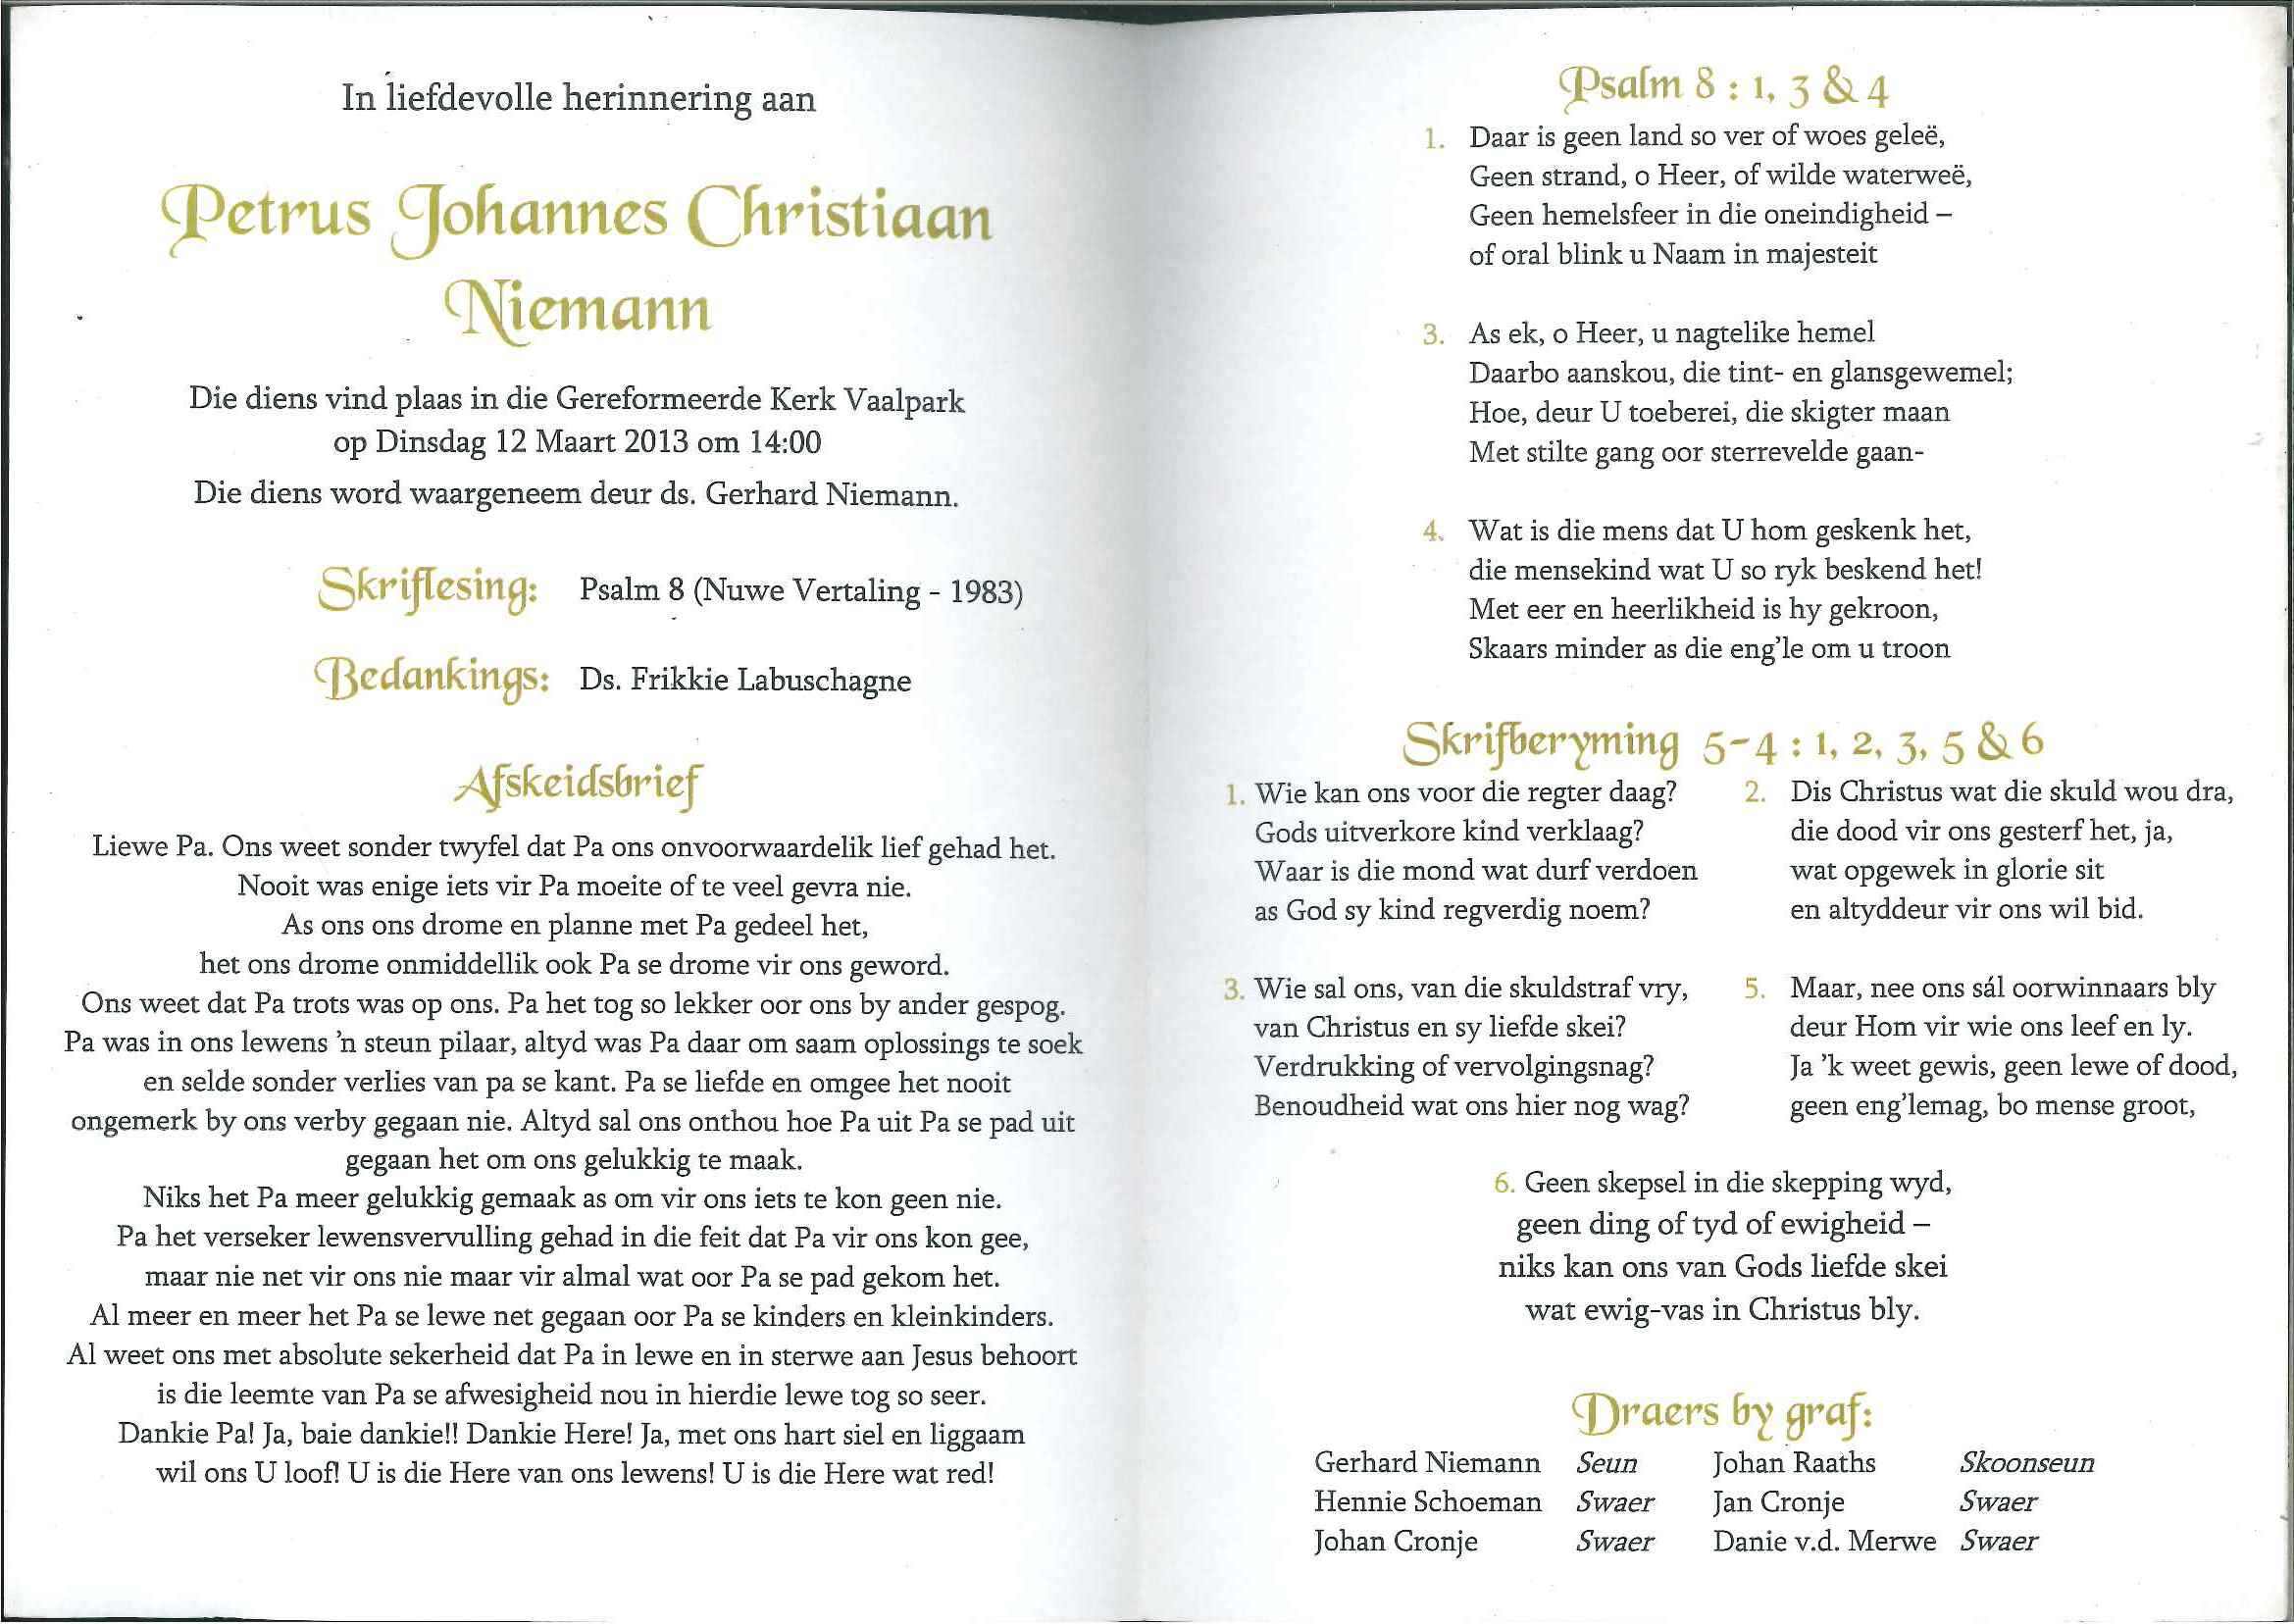 In liefdevolle herinnering aan
Petrus Johannes Christiaan
Niemann
Die diens vind plaas in die Gereformeerde Kerk Vaalpark
op Dinsdag 12 Maart 2013 om 14:00
Die diens word waargeneem deur ds. Gerhard Niemann.
Skriflesing: Psalm 8 (Nuwe Vertaling - 1983)
Bedankings: Ds. Frikkie Labuschagne
Afskeidsbrief
Liewe Pa. Ons weet sonder twyfel dat Pa ons onvoorwaardelik lief gehad het.
Nooit was enige iets vir Pa moeite of te veel gevra nie.
As ons ons drome en planne met Pa gedeel het,
het ons drome onmiddellik ook Pa se drome vir ons geword.
Ons weet dat Pa trots was op ons. Pa het tog so lekker oor ons by ander gespog.
Pa was in ons lewens 'n steun pilaar, altyd was Pa daar om saam oplossings te soek
en selde sonder verlies van pa se kant. Pa se liefde en omgee het nooit
ongemerk by ons verby gegaan nie. Altyd sal ons onthou hoe Pa uit Pa se pad uit
gegaan het om ons gelukkig te maak.
Niks het Pa meer gelukkig gemaak as om vir ons iets te kon geen nie.
Pa het verseker lewensvervulling gehad in die feit dat Pa vir ons kon gee,
maar nie net vir ons nie maar vir almal wat oor Pa se pad gekom het.
Al meer en meer het Pa se lewe net gegaan oor Pa se kinders en kleinkinders.
Al weet ons met absolute sekerheid dat Pa in lewe en in sterwe aan Jesus behoort
is die leemte van Pa se afwesigheid nou in hierdie lewe tog so seer.
Dankie Pa! Ja, baie dankie!! Dankie Here! Ja, met ons hart siel en liggaam
wil ons U loof! U is die Here van ons lewens! U is die Here wat red!
Psalm 8 : 1, 3 & 4
1. Daar is geen land so ver of woes geleë,
Geen strand, o Heer, of wilde waterweë,
Geen hemelsfeer in die oneindigheid –
of oral blink u Naam in majesteit
3. As ek, o Heer, u nagtelike hemel
Daarbo aanskou, die tint- en glansgewemel;
Hoe, deur U toeberei, die skigter maan
Met stilte gang oor sterrevelde gaan-
4. Wat is die mens dat U hom geskenk het,
die mensekind wat U so ryk beskend het!
Met eer en heerlikheid is hy gekroon,
Skaars minder as die eng'le om u troon
Skrifberyming 5-4 : 1, 2, 3, 5 & 6
1. Wie kan ons voor die regter daag?
Gods uitverkore kind verklaag?
Waar is die mond wat durf verdoen
as God sy kind regverdig noem?
2. Dis Christus wat die skuld wou dra,
die dood vir ons gesterf het, ja,
wat opgewek in glorie sit
en altyddeur vir ons wil bid.
3. Wie sal ons, van die skuldstraf vry,
van Christus en sy liefde skei?
Verdrukking of vervolgingsnag?
Benoudheid wat ons hier nog wag?
5. Maar, nee ons sál oorwinnaars bly
deur Hom vir wie ons leef en ly.
Ja 'k weet gewis, geen lewe of dood,
geen eng'lemag, bo mense groot,
6. Geen skepsel in die skepping wyd,
geen ding of tyd of ewigheid –
niks kan ons van Gods liefde skei
wat ewig-vas in Christus bly.
Draers by graf:
Gerhard Niemann Seun Johan Raaths Skoonseun
Hennie Schoeman Swaer Jan Cronje Swaer
Johan Cronje Swaer Danie v.d. Merwe Swaer